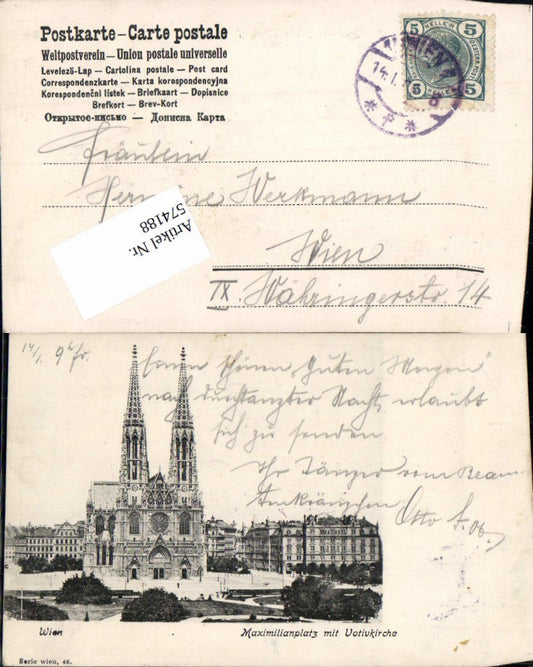 Postkarte — Carte postale
Weltpostverein — Union postale universelle
Levelező-Lap — Cartolina postale — Post card
Correspondenzkarte — Karta korespondencyjna
Korespondenční lístek — Briefkaart — Dopisnice
Brefkort — Brev-Kort
Открытое-письмо — Дописна Карта
5 HELLER 5
5 HELLER 5
WIEN
14.I.
* P *
Fräulein
Hermine Werkmann
Wien
IX. Währingerstr 14
Artikel Nr.
574188
14/I. 9h fr.
Einen schönen Guten Morgen"
nach durchtanzter Nacht, erlaubt
sich zu senden
Ihr Tänzer vom Beam
tenkränzchen
Otto
Wien
Maximilianplatz mit Votivkirche
Serie wien, 46.